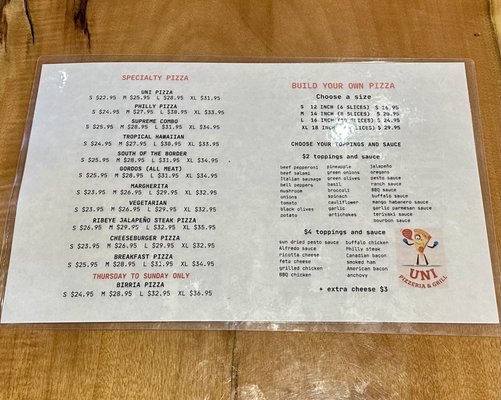 SPECIALTY PIZZA
UNI PIZZA
S $22.95 M $25.95 L $28.95 XL $31.95
PHILLY PIZZA
S $24.95 M $27.95 L $30.95 XL $33.95
SUPREME COMBO
S $25.95 M $28.95 L $31.95 XL $34.95
TROPICAL HAWAIIAN
S $24.95 M $27.95 L $30.95 XL $33.95
SOUTH OF THE BORDER
S $25.95 M $28.95 L $31.95 XL $34.95
GORDOS (ALL MEAT)
S $25.95 M $28.95 L $31.95 XL $34.95
MARGHERITA
S $23.95 M $26.95 L $29.95 XL $32.95
VEGETARIAN
S $23.95 M $26.95 L $29.95 XL $32.95
RIBEYE JALAPEÑO STEAK PIZZA
S $26.95 M $29.95 L $32.95 XL $35.95
CHEESEBURGER PIZZA
S $23.95 M $26.95 L $29.95 XL $32.95
BREAKFAST PIZZA
S $25.95 M $28.95 L $31.95 XL $34.95
THURSDAY TO SUNDAY ONLY
BIRRIA PIZZA
S $24.95 M $28.95 L $32.95 XL $36.95
BUILD YOUR OWN PIZZA
Choose a size
S 12 INCH (6 SLICES) $ 16.95
M 14 INCH (8 SLICES) $ 20.95
L 16 INCH (10 SLICES) $ 24.95
XL 18 INCH SLICES) $ 29.95
CHOOSE YOUR TOPPINGS AND SAUCE
$2 toppings and sauce
beef pepperoni pineapple jalapeño
beef salami green onions oregano
Italian sausage green olives pesto sauce
bell peppers basil ranch sauce
mushroom broccoli BBQ sauce
onions spinach buffalo sauce
tomato cauliflower mango habanero sauce
black olives garlic garlic parmesan sauce
potato artichokes teriyaki sauce
bourbon sauce
$4 toppings and sauce
sun dried pesto sauce buffalo chicken
Alfredo sauce Philly steak
ricotta cheese Canadian bacon
feta cheese smoked ham
grilled chicken American bacon
BBQ chicken anchovy
+ extra cheese $3
UNI
PIZZERIA & GRILL